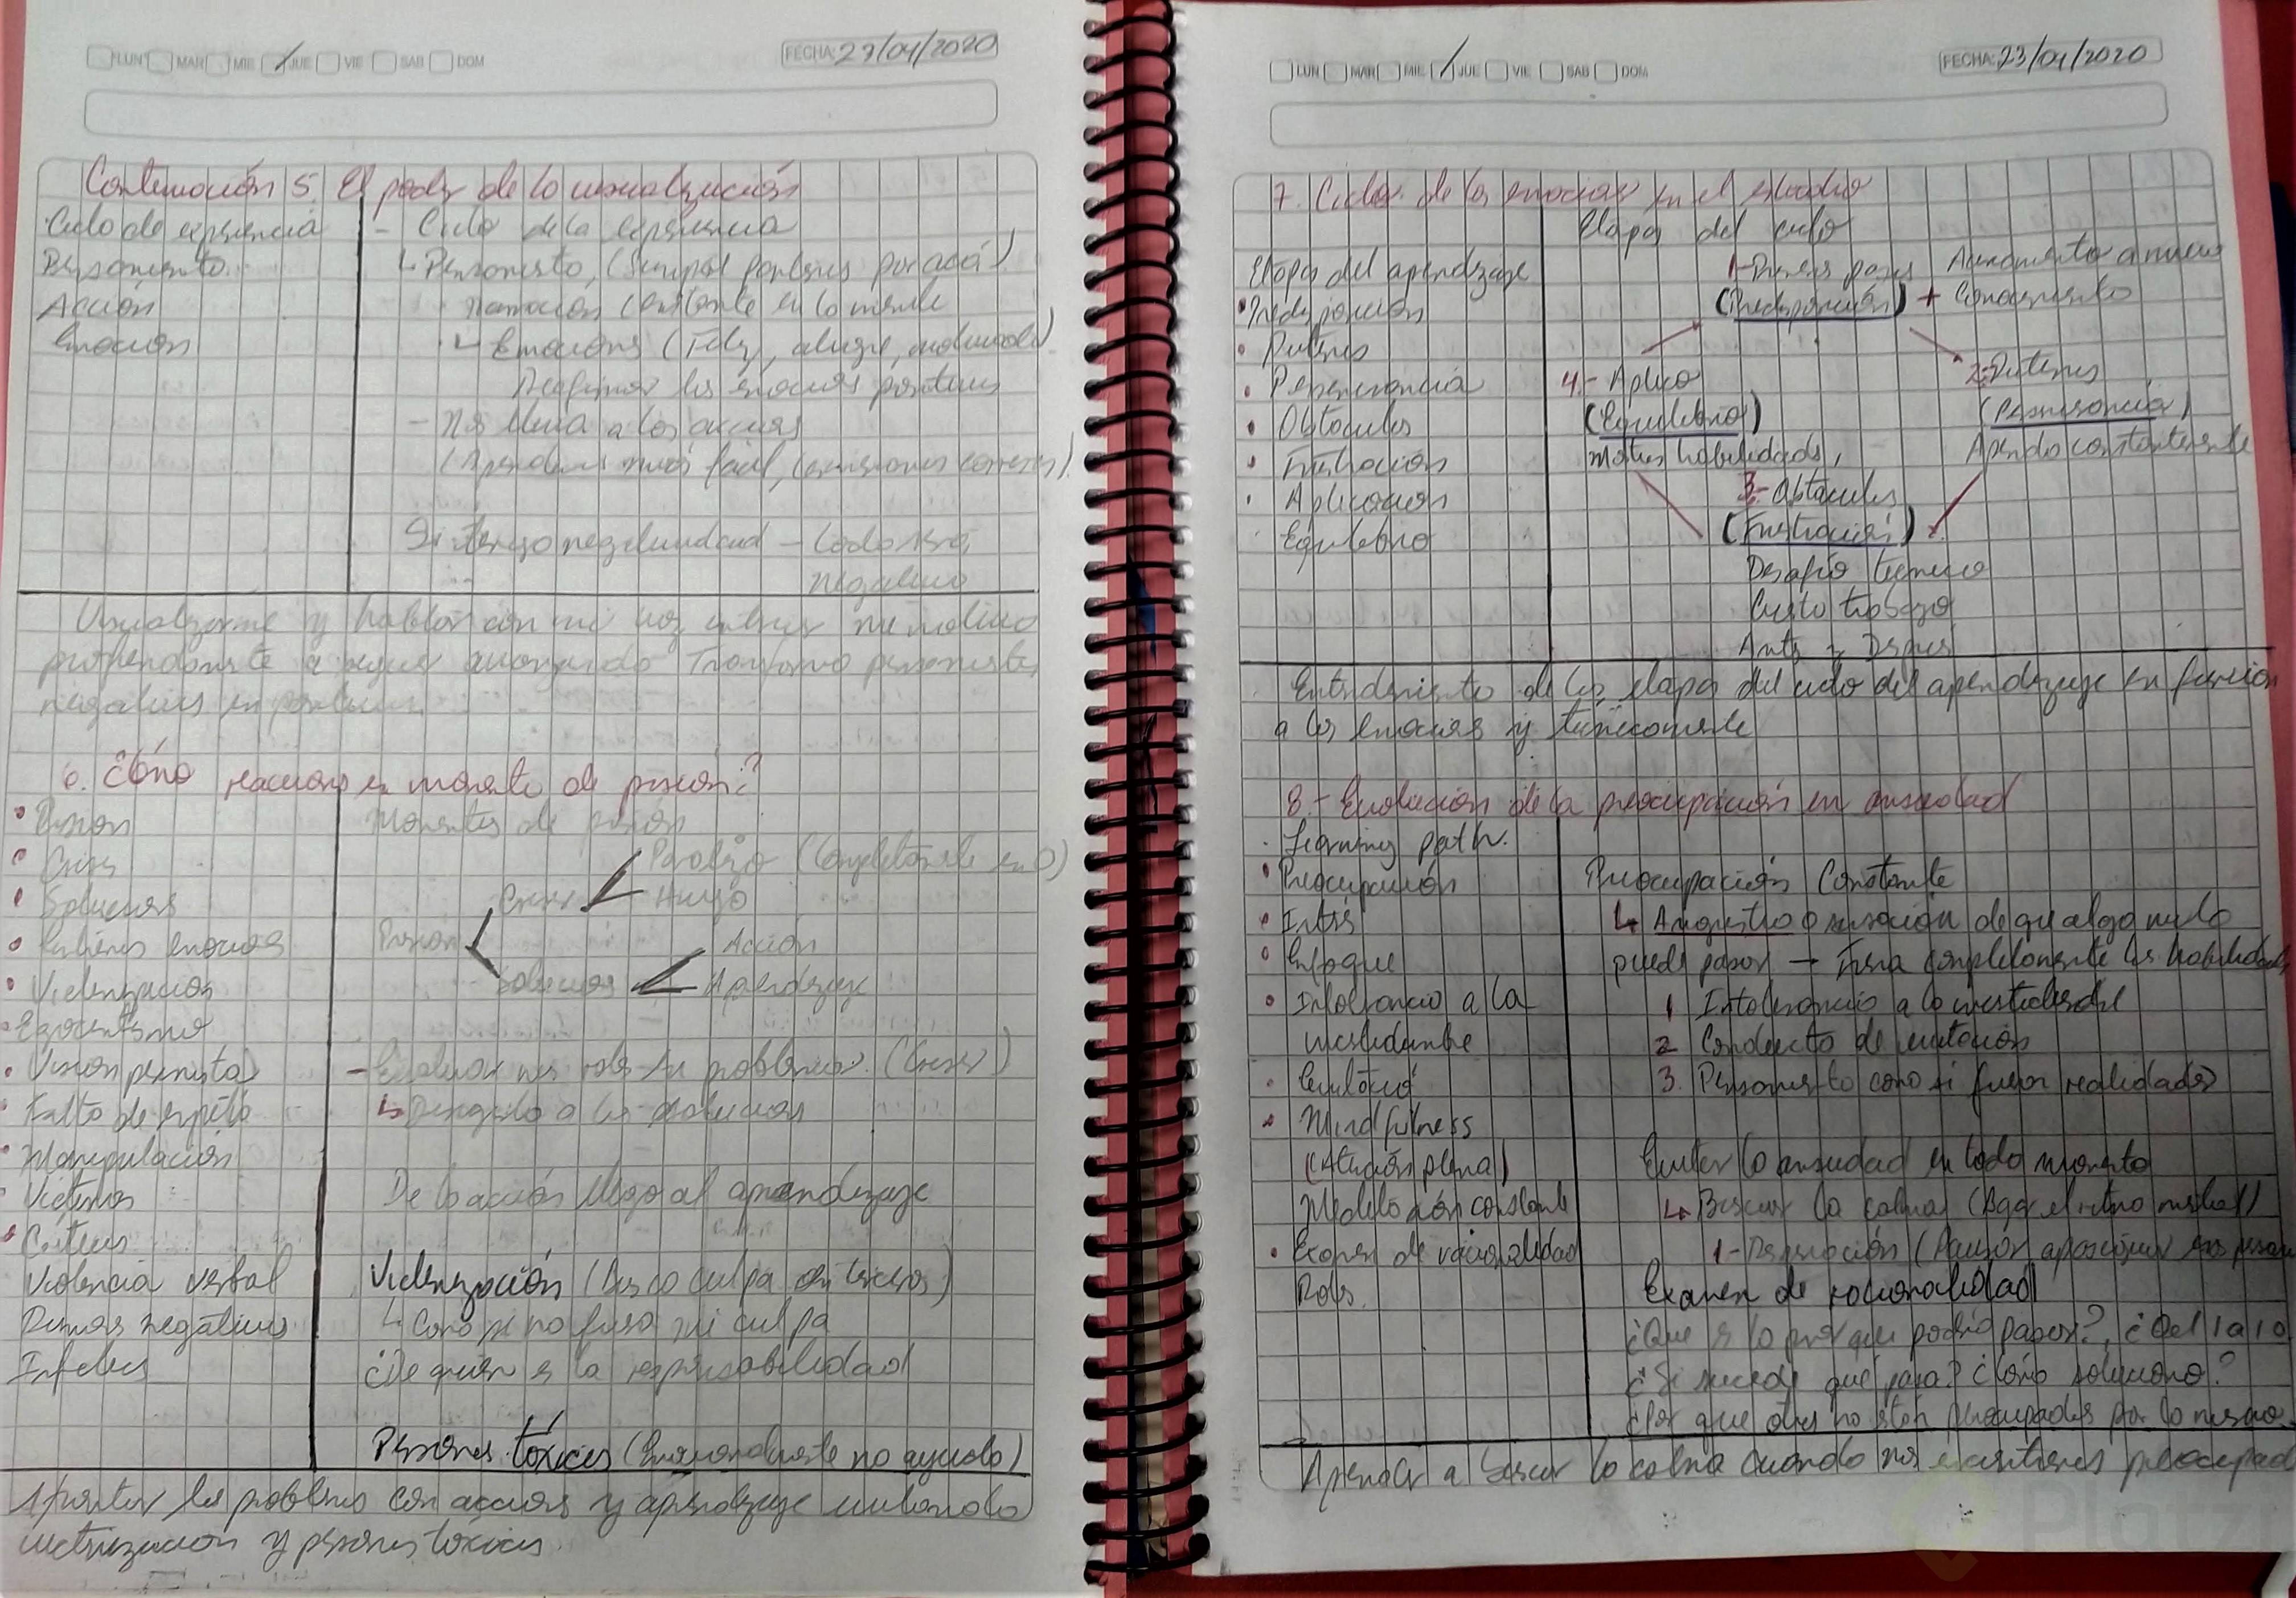 LUN MAR MIE JUE VIE SAB DOM
FECHA: 23/04/2020
Continuación 5. El poder de la visualización
Ciclo de experiencia
Pensamiento
Acción
Emoción
- Ciclo de la experiencia
Pensamiento, (Siempre positivos por acá)
Narración constante en la mente
Emociones (Feliz, alegre,
Reafirmar las emociones positivas
- Nos lleva a las acciones
(Aprendemos más fácil, conexiones
Si tengo negatividad - todo será
negativo
Visualizarme y hablar con mi voz interior me motiva
a seguir avanzando Transformo pensamientos
negativos en positivos.
6. ¿Cómo reaccionas en momento de presión?
Presión
Crisis
Soluciones
Emociones
Victimización
Egocentrismo
Visión pesimista
Falta de respeto
Manipulación
Víctimas
Críticas
Violencia verbal
negativos
Infelices
Momentos de presión
Presión
Crisis
Paraliza (Completamente en 0)
Huyo
Soluciones
Acción
Aprendizaje
- Enfocar mis roles en problemas. (Crisis)
a las soluciones
De la acción llego al aprendizaje
Victimización (Busco culpa en terceros)
Como si no fuera mi culpa
¿De quién es la responsabilidad
Personas tóxicas (Emocionalmente no ayuda)
los problemas con acciones y aprendizaje evitando la
victimización y personas tóxicas
LUN MAR MIE JUE VIE SAB DOM
FECHA: 23/04/2020
7. Ciclos de las emociones en el estudio
Etapas del aprendizaje
Predisposición
Interés
Perseverancia
Obstáculos
Frustración
Aplicación
Equilibrio
Etapas del ciclo
1- Primeros pasos
(Predisposición) +
Acercamiento a nuevo
Conocimiento
2- Interés
(Perseverancia)
Aprendo constantemente
3- Obstáculos
(Frustración)
Desafío técnico
Cuesta trabajo
Antes y Después
4.- Aplico
(Equilibrio)
habilidades,
Entendimiento de las etapas del ciclo del aprendizaje en función
a las emociones y técnicamente
8.- Evolución de la preocupación en ansiedad
Learning path.
Preocupación
Interés
Enfoque
Intolerancia a la
incertidumbre
Mindfulness
(Atención plena)
Meditación constante
Examen de racionalidad
Roles.
Preocupación Constante
Angustia o sensación de que algo malo
puede pasar → Frena completamente las habilidades
1 Intolerancia a la incertidumbre
2 Conducta de evitación
3. Pensamiento como si fueran realidades
Evitar la ansiedad en todo momento
Buscar la calma (Bajar el ritmo mental)
1- Respiración
Examen de racionalidad
¿Que es lo peor que podría pasar?, ¿Del 1 a 10
¿Si sucede que pasa? ¿Cómo soluciono?
¿Por que otros no están preocupados por lo mismo
Aprender a buscar la calma cuando nos encontremos preocupad
Platzi